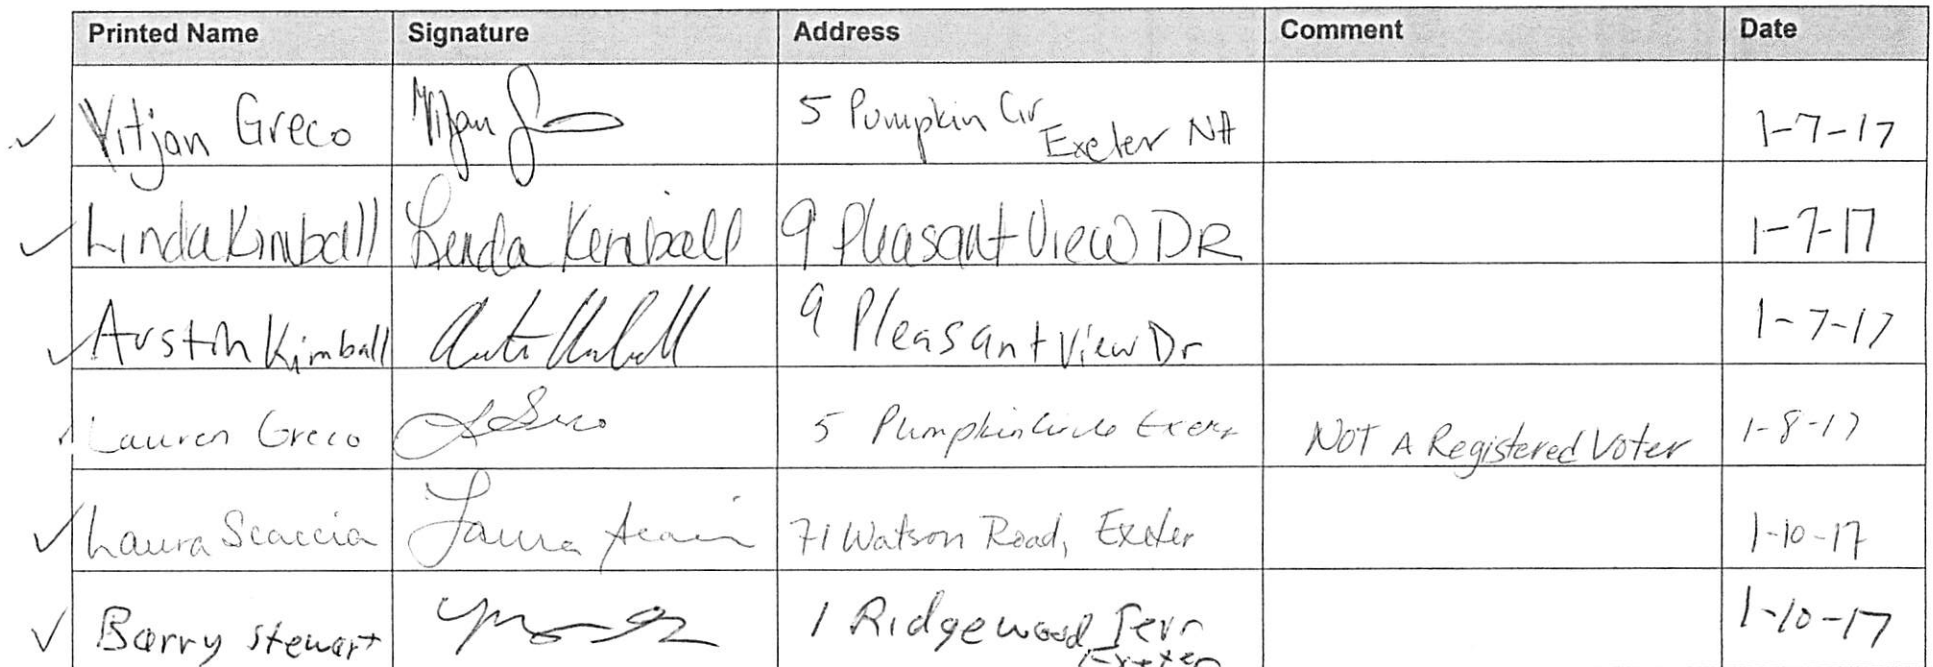 Printed Name Signature Address Comment Date
Yitjan Greco Yitjan 5 Pumpkin Cir Exeter NH 1-7-17
Linda Kimball Linda Kimball 9 Pleasant View DR 1-7-17
Austin Kimball 9 Pleasant View Dr 1-7-17
Lauren Greco 5 Pumpkin Circle NOT A Registered Voter 1-8-17
Laura Scaccia Laura 71 Watson Road, Exeter 1-10-17
Barry Stewart 1 Ridgewood Terr 1-10-17
Exeter